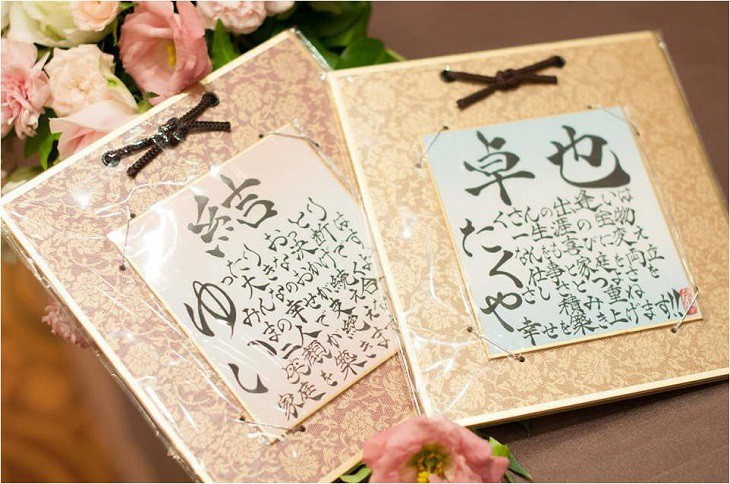 結
ゆい
ゆったり おっとり
大きな決断は
みんなのおかげです
いまの幸せが続く
二人で支え合え
笑顔が絶えない
家庭を築きます
卓也
たくや
たくさんの出逢いは
一生涯の宝物
くなんも喜びに変え
仕事と家庭両立を
やさしさ
積み重ね
幸せを築き上げます!!